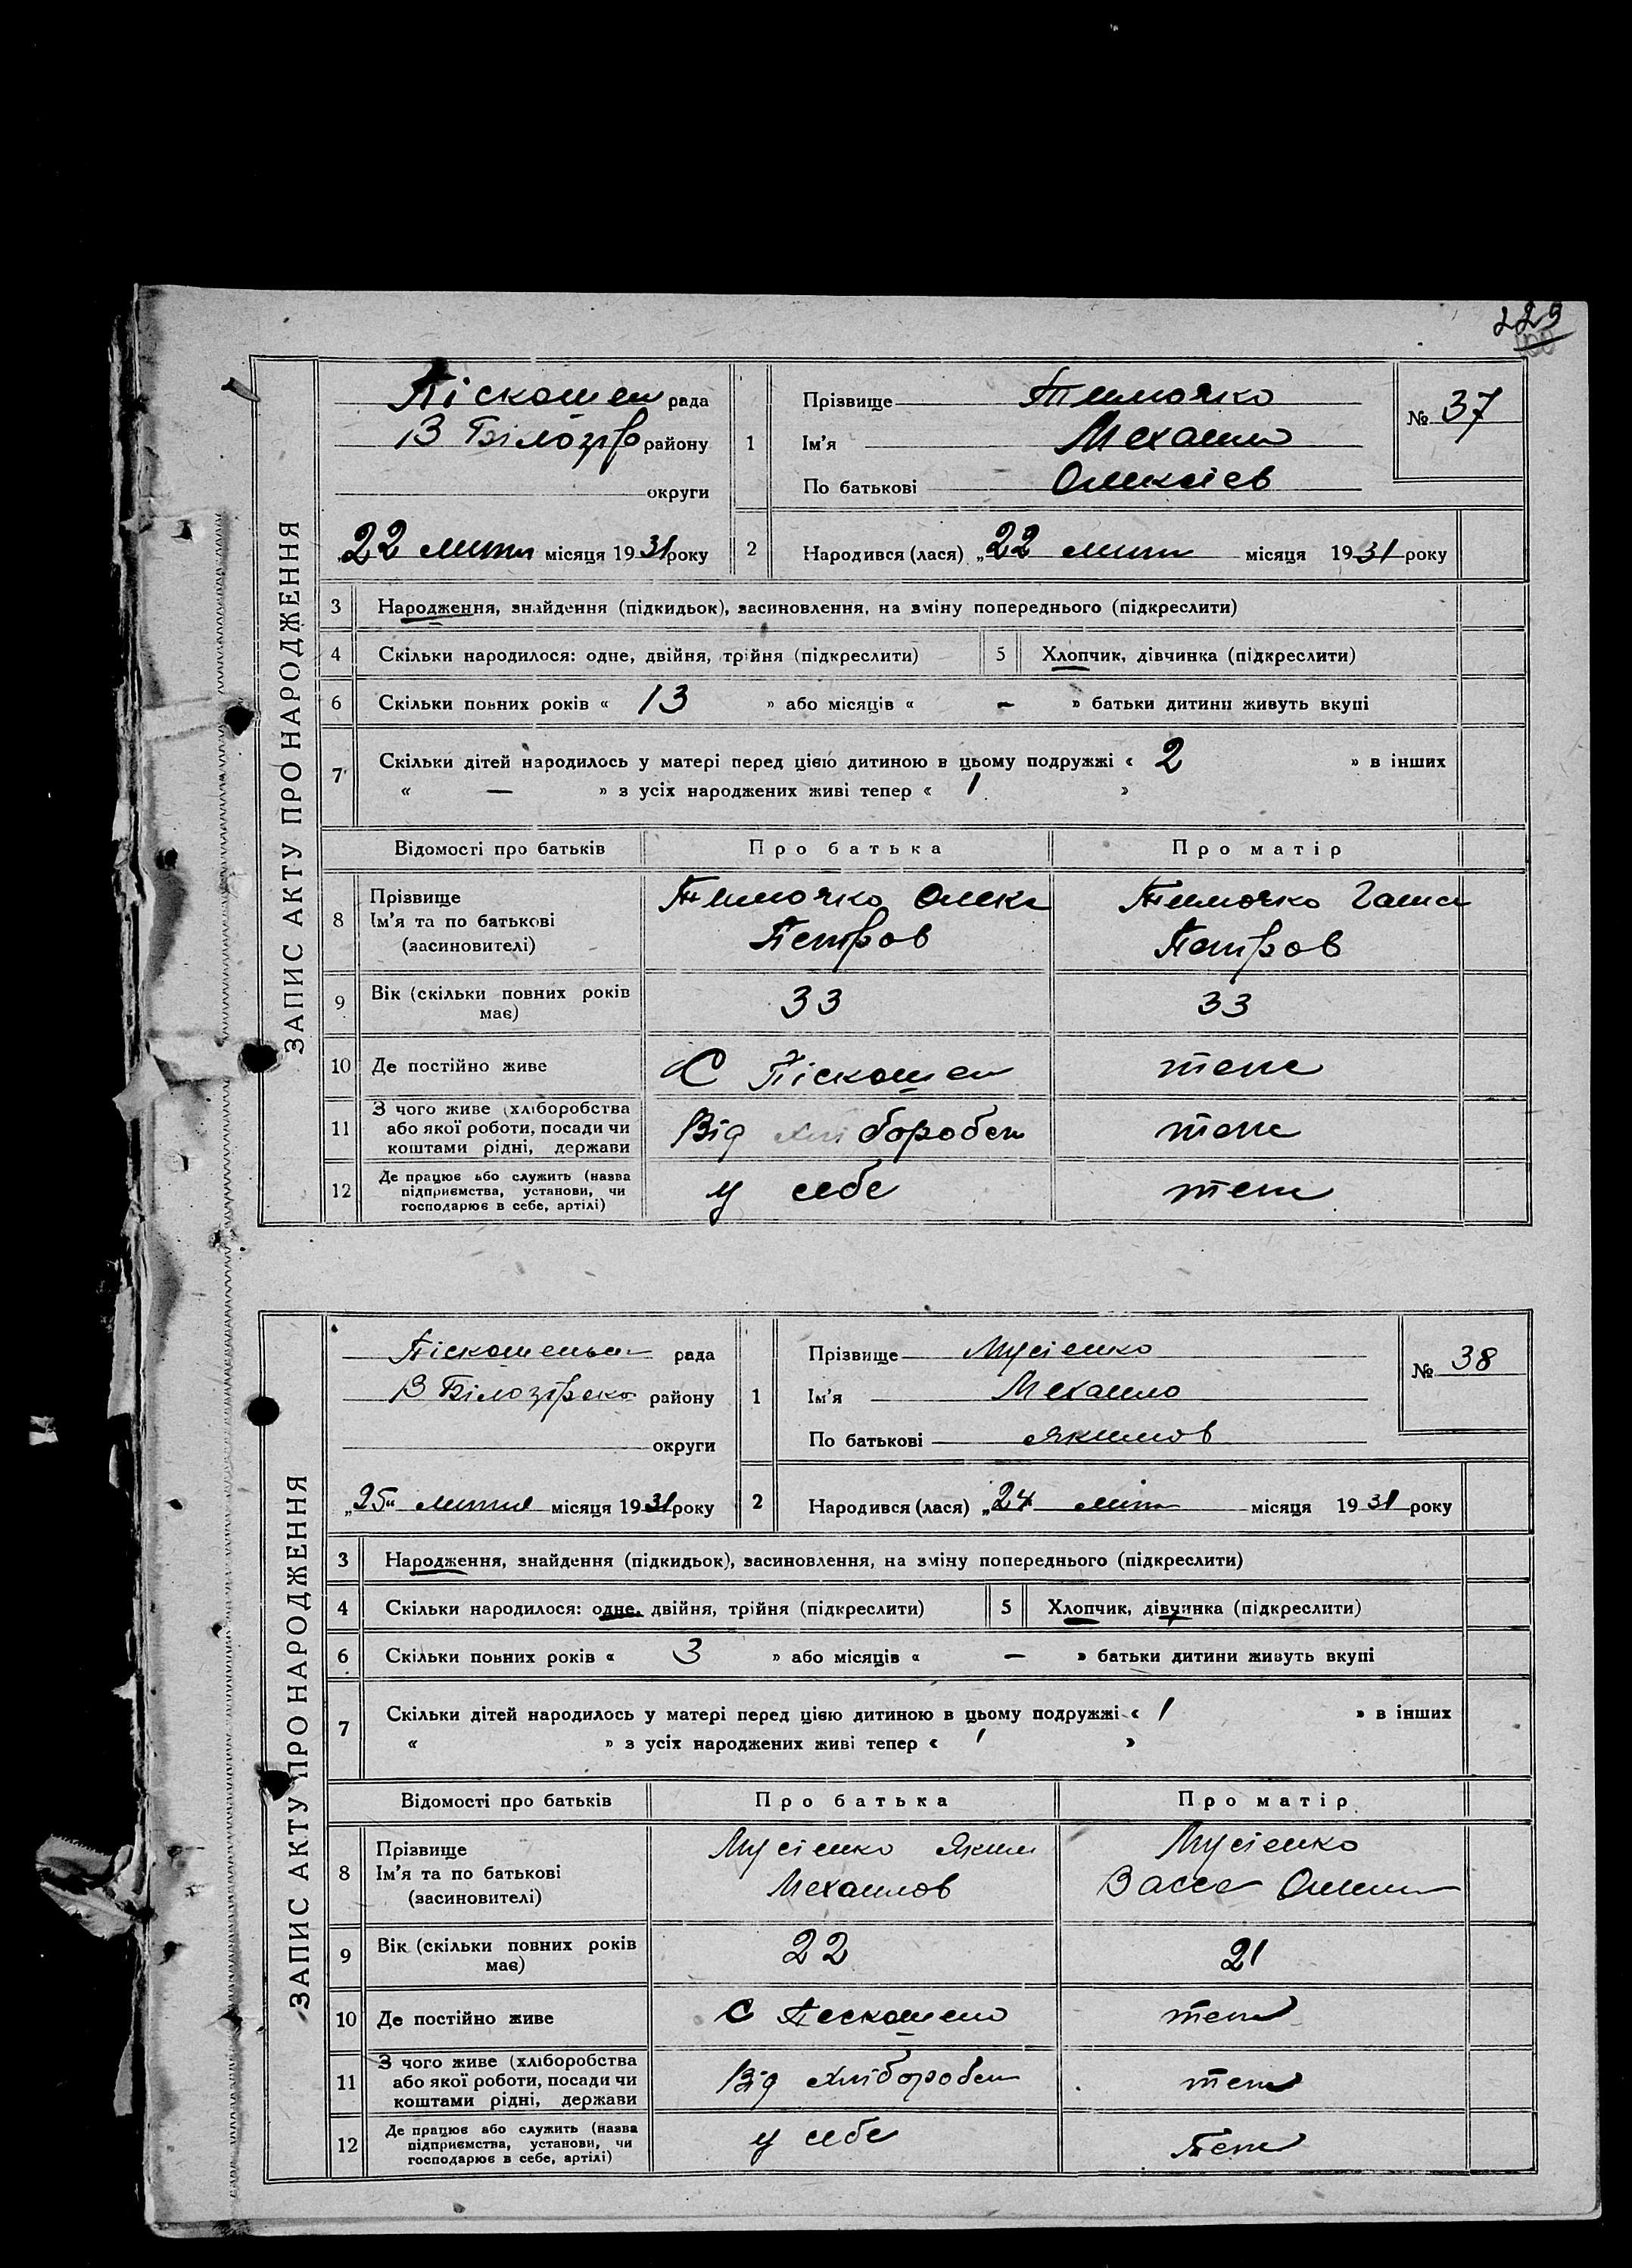 229
ЗАПИС АКТУ ПРО НАРОДЖЕННЯ
Піскошин рада
В Білозір району
округи
22 лютн місяця 1931 року
1
Прізвище Тимочко
Ім'я Механло
По батькові Олексієв
№ 37
2 Народився (лася) „22 лютн місяця 1931 року
3 Народження, знайдення (підкидьок), засиновлення, на зміну попереднього (підкреслити)
4 Скільки народилося: одне, двійня, трійня (підкреслити) 5 Хлопчик, дівчинка (підкреслити)
6 Скільки повних років « 13 » або місяців « – » батьки дитини живуть вкупі
7 Скільки дітей народилось у матері перед цією дитиною в цьому подружжі « 2 » в інших
« – » з усіх народжених живі тепер « 1 »
Відомості про батьків Про батька Про матір
8 Прізвище
Ім'я та по батькові
(засиновителі)
Тимочко Олекс
Петров
Тимочко
Петров
9 Вік (скільки повних років
має) 33 33
10 Де постійно живе С Піскошен теж
11 З чого живе (хліборобства
або якої роботи, посади чи
коштами рідні, держави
Від хліборобст теж
12 Де працює або служить (назва
підприємства, установи, чи
господарює в себе, артілі)
у себе теж
ЗАПИС АКТУ ПРО НАРОДЖЕННЯ
рада
В Білозірсько району
округи
„25“ лютня місяця 1931 року
1
Прізвище Мусієнко
Ім'я Механло
По батькові Якимов
№ 38
2 Народився (лася) „24 лютн місяця 1931 року
3 Народження, знайдення (підкидьок), засиновлення, на зміну попереднього (підкреслити)
4 Скільки народилося: одне, двійня, трійня (підкреслити) 5 Хлопчик, дівчинка (підкреслити)
6 Скільки повних років « 3 » або місяців « – » батьки дитини живуть вкупі
7 Скільки дітей народилось у матері перед цією дитиною в цьому подружжі « 1 » в інших
« » з усіх народжених живі тепер « 1 »
Відомості про батьків Про батька Про матір
8 Прізвище
Ім'я та по батькові
(засиновителі)
Мусієнко Яким
Механлов
Мусієнко
Васса
9 Вік (скільки повних років
має) 22 21
10 Де постійно живе С Пескошено теж
11 З чого живе (хліборобства
або якої роботи, посади чи
коштами рідні, держави
Від хліборобст теж
12 Де працює або служить (назва
підприємства, установи, чи
господарює в себе, артілі)
у себе Теж